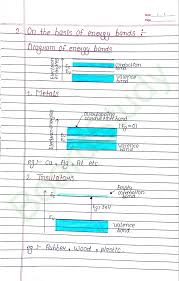 2. On the basis of energy bands :-
Diagram of energy bands
conduction
band
valence
band
1. Metals
overlapping
conduction band
Eg=0
valence
band
eg :- Cu, Ag, Al etc.
2. Insulators
Empty
conduction
band
valence
band
eg :- Rubber, wood, plastic.